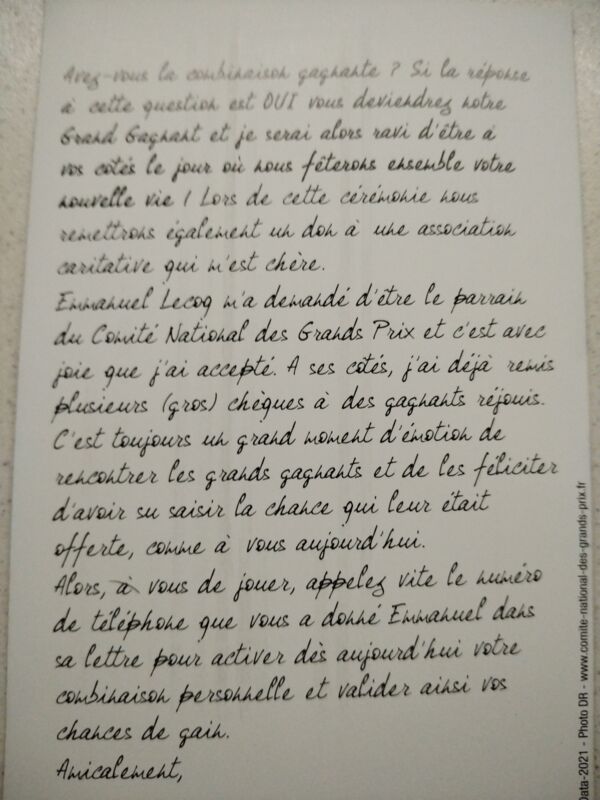 Avez-vous la combinaison gagnante ? Si la réponse
à cette question est OUI vous deviendrez notre
Grand Gagnant et je serai alors ravi d'être à
vos cotés le jour où nous fêterons ensemble votre
nouvelle vie ! Lors de cette cérémonie nous
remettrons également un don à une association
caritative qui m'est chère.
Emmanuel Lecoq m'a demandé d'être le parrain
du Comité National des Grands Prix et c'est avec
joie que j'ai accepté. A ses cotés, j'ai déjà remis
plusieurs (gros) chèques à des gagnants réjouis.
C'est toujours un grand moment d'émotion de
rencontrer les grands gagnants et de les féliciter
d'avoir su saisir la chance qui leur était
offerte, comme à vous aujourd'hui.
Alors, à vous de jouer, appelez vite le numéro
de téléphone que vous a donné Emmanuel dans
sa lettre pour activer dès aujourd'hui votre
combinaison personnelle et valider ainsi vos
chances de gain.
Amicalement,
Data-2021 - Photo DR - www.comite-national-des-grands-prix.fr